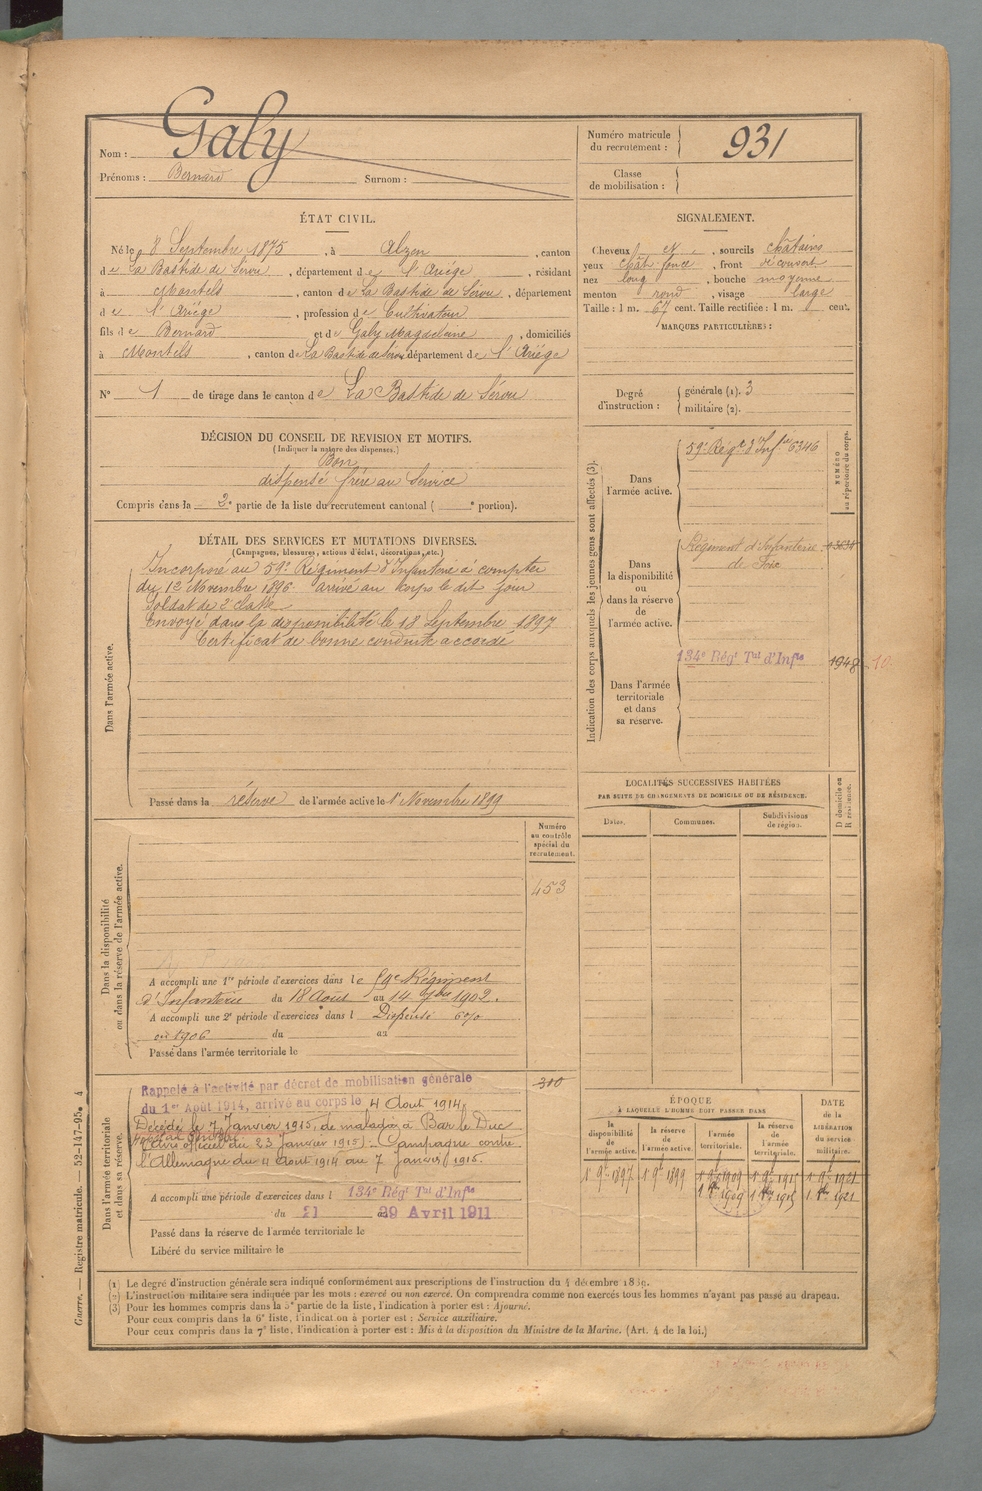 Nom : Galy
Prénoms : Bernard Surnom :
Numéro matricule du recrutement : 931
Classe de mobilisation :
ÉTAT CIVIL.
Né le 8 Septembre 1875, à Alzen, canton
de La Bastide de Sérou, département de l'Ariége, résidant
à Montels, canton de La Bastide de Sérou, département
de l'Ariége, profession de Cultivateur
fils de Bernard et de Galy Magdelaine, domiciliés
à Montels, canton de La Bastide de Sérou, département de l'Ariége
N° 1 de tirage dans le canton de La Bastide de Sérou
SIGNALEMENT.
Cheveux et, sourcils châtains
yeux chât. foncé, front découvert
nez long, bouche moyenne
menton rond, visage large
Taille : 1 m. 67 cent. Taille rectifiée : 1 m. cent.
MARQUES PARTICULIÈRES :
Degré d'instruction : générale (1). 3
militaire (2).
DÉCISION DU CONSEIL DE REVISION ET MOTIFS.
(Indiquer la nature des dispenses.)
Bon
dispensé frère au Service
Compris dans la 2e partie de la liste du recrutement cantonal ( e portion).
DÉTAIL DES SERVICES ET MUTATIONS DIVERSES.
(Campagnes, blessures, actions d'éclat, décorations, etc.)
Dans l'armée active.
Incorporé au 59e Régiment d'Infanterie à compter
du 12 Novembre 1896. arrivé au Corps le dit jour
Soldat de 2e classe
Envoyé dans la disponibilité le 18 Septembre 1897
Certificat de bonne conduite accordé
Passé dans la réserve de l'armée active le 1er Novembre 1899
Indication des corps auxquels les jeunes gens sont affectés (3).
NUMÉRO au répertoire du corps.
Dans l'armée active.
59e Régt d'Infie 6346
Dans la disponibilité ou dans la réserve de l'armée active.
Régiment d'Infanterie
de Foix
Dans l'armée territoriale et dans sa réserve.
134e Régt Tal d'Infie 1948
LOCALITÉS SUCCESSIVES HABITÉES
PAR SUITE DE CHANGEMENTS DE DOMICILE OU DE RÉSIDENCE.
Dates. Communes. Subdivisions de région.
D domicile ou R résidence.
Dans la disponibilité ou dans la réserve de l'armée active.
Numéro au contrôle spécial du recrutement.
453
A accompli une 1re période d'exercices dans le 59e Régiment
d'Infanterie du 18 Août au 14 7bre 1902.
A accompli une 2e période d'exercices dans l Dispensé 6%
en 1906 du au
Passé dans l'armée territoriale le
Dans l'armée territoriale et dans sa réserve.
310
Rappelé à l'activité par décret de mobilisation générale
du 1er Août 1914, arrivé au corps le 4 Aout 1914.
Décédé le 7 Janvier 1915, de maladie à Bar le Duc
(Avis officiel du 23 Janvier 1915) - Campagne contre
l'Allemagne du 4 Aout 1914 au 7 Janvier 1915.
A accompli une période d'exercices dans l 134e Régt Tal d'Infie
du 21 au 29 Avril 1911
Passé dans la réserve de l'armée territoriale le
Libéré du service militaire le
ÉPOQUE
À LAQUELLE L'HOMME DOIT PASSER DANS
la disponibilité de l'armée active.
la réserve de l'armée active.
l'armée territoriale.
la réserve de l'armée territoriale.
DATE de la LIBÉRATION du service militaire.
1er 9bre 1897 1er 9bre 1899 1er 9bre 1909 1er 9bre 1915 1er 9bre 1921
1er 8bre 1909 1er 8bre 1915 1er 8bre 1921
(1) Le degré d'instruction générale sera indiqué conformément aux prescriptions de l'instruction du 4 décembre 1889.
(2) L'instruction militaire sera indiquée par les mots : exercé ou non exercé. On comprendra comme non exercés tous les hommes n'ayant pas passé au drapeau.
(3) Pour les hommes compris dans la 5e partie de la liste, l'indication à porter est : Ajourné.
Pour ceux compris dans la 6e liste, l'indication à porter est : Service auxiliaire.
Pour ceux compris dans la 7e liste, l'indication à porter est : Mis à la disposition du Ministre de la Marine. (Art. 4 de la loi.)
Guerre. — Registre matricule. — 52-147-95. 4